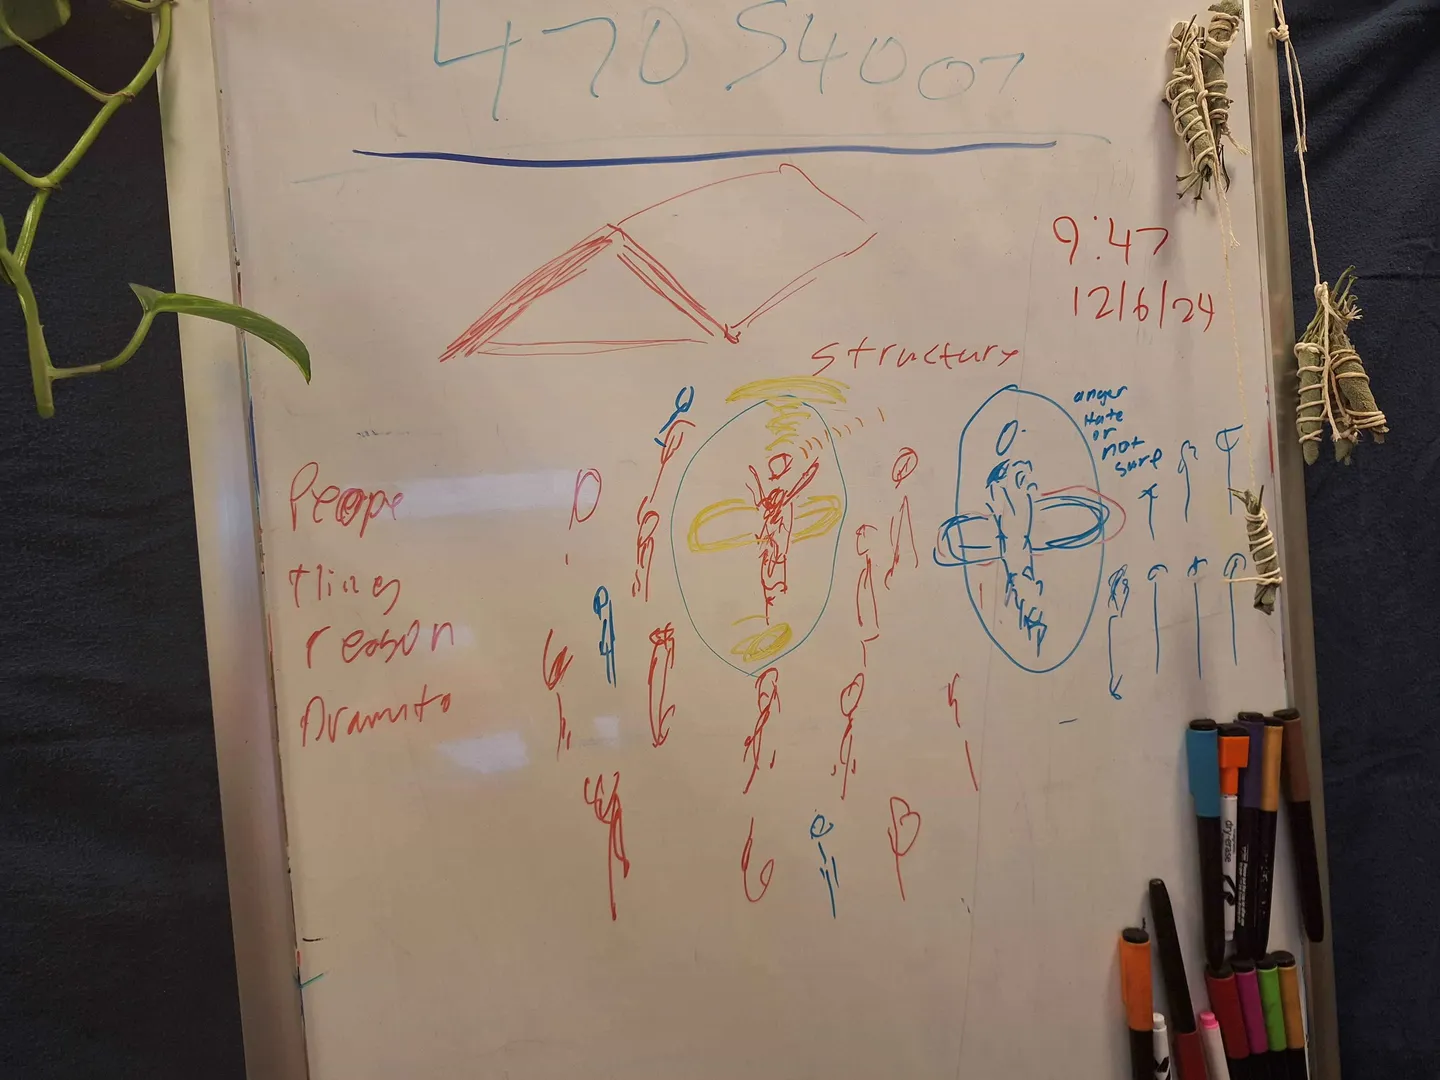 470 54007
9:47
12/6/24
structury
anger
Hate
or
not
sure
Peeope
thing
reason
Dramuto
dry-erase